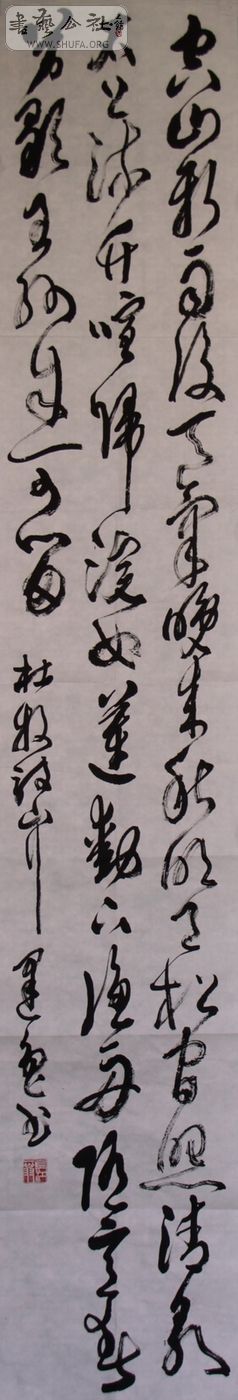 空山新雨後天氣晚來秋明月松間照清泉
石上流竹喧歸浣女蓮動下漁舟隨意春
芳歇王孫自可留
杜牧詩山行
書藝公社
WWW.SHUFA.ORG